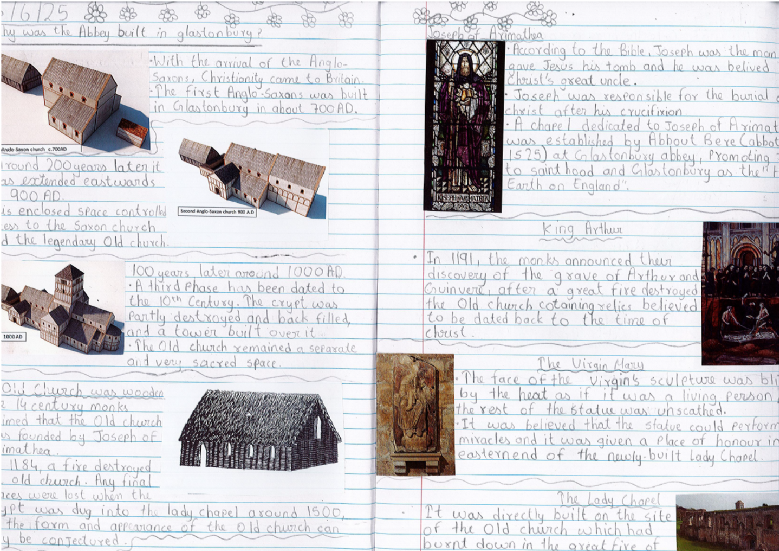 16/25
hy was the Abbey built in glastonbury?
· With the arrival of the Anglo-
Saxons, Christianity came to Britain.
· The first Anglo-Saxons was built
in Glastonbury in about 700 AD.
Anglo-Saxon church c.700AD
round 200 years later it
as extended eastwards
900 AD.
is enclosed space controlled
ess to the Saxon church
d the legendary Old church
Second Anglo-Saxon church 900 A.D
100 years later around 1000 AD.
· A third Phase has been dated to
the 10th Century. The crypt was
Partly destroyed and back filled,
and a tower built over it.
· The Old church remained a separate
and very sacred space.
1000 AD
Old Church was wooden
14 century monks
imed that the Old church
s founded by Joseph of
imathea
1184, a fire destroyed
old church. Any final
aces were lost when the
ypt was dug into the lady chapel around 1500,
the form and appearance of the Old church can
y be conjectured.
Joseph of Arimathea
· According to the Bible, Joseph was the man
gave Jesus his tomb and he was belived
Christ's great uncle.
· Joseph was responsible for the burial
christ after his crucifixion
A chapel dedicated to Joseph of Arimat
was established by Abbout Bere (abbot
1525) at Glastonbury abbey, Promoting
to saint hood and Glastonbury as the "H
Earth on England".
King Arthur
· In 1191, the monks announced their
discovery of the grave of Arthur and
Guinvere, after a great fire destroyed
the Old church cotaining relics believed
to be dated back to the time of
christ.
The Virgin Mary
· The face of the virgin's sculpture was bli
by the heat as if it was a living person,
the rest of the statue was unscathed.
· It was believed that the statue could perform
miracles and it was given a place of honour in
eastern end of the newly-built Lady Chapel
The Lady Chapel
It was directly built on the site
of the Old church which had
burnt down in the great fire of